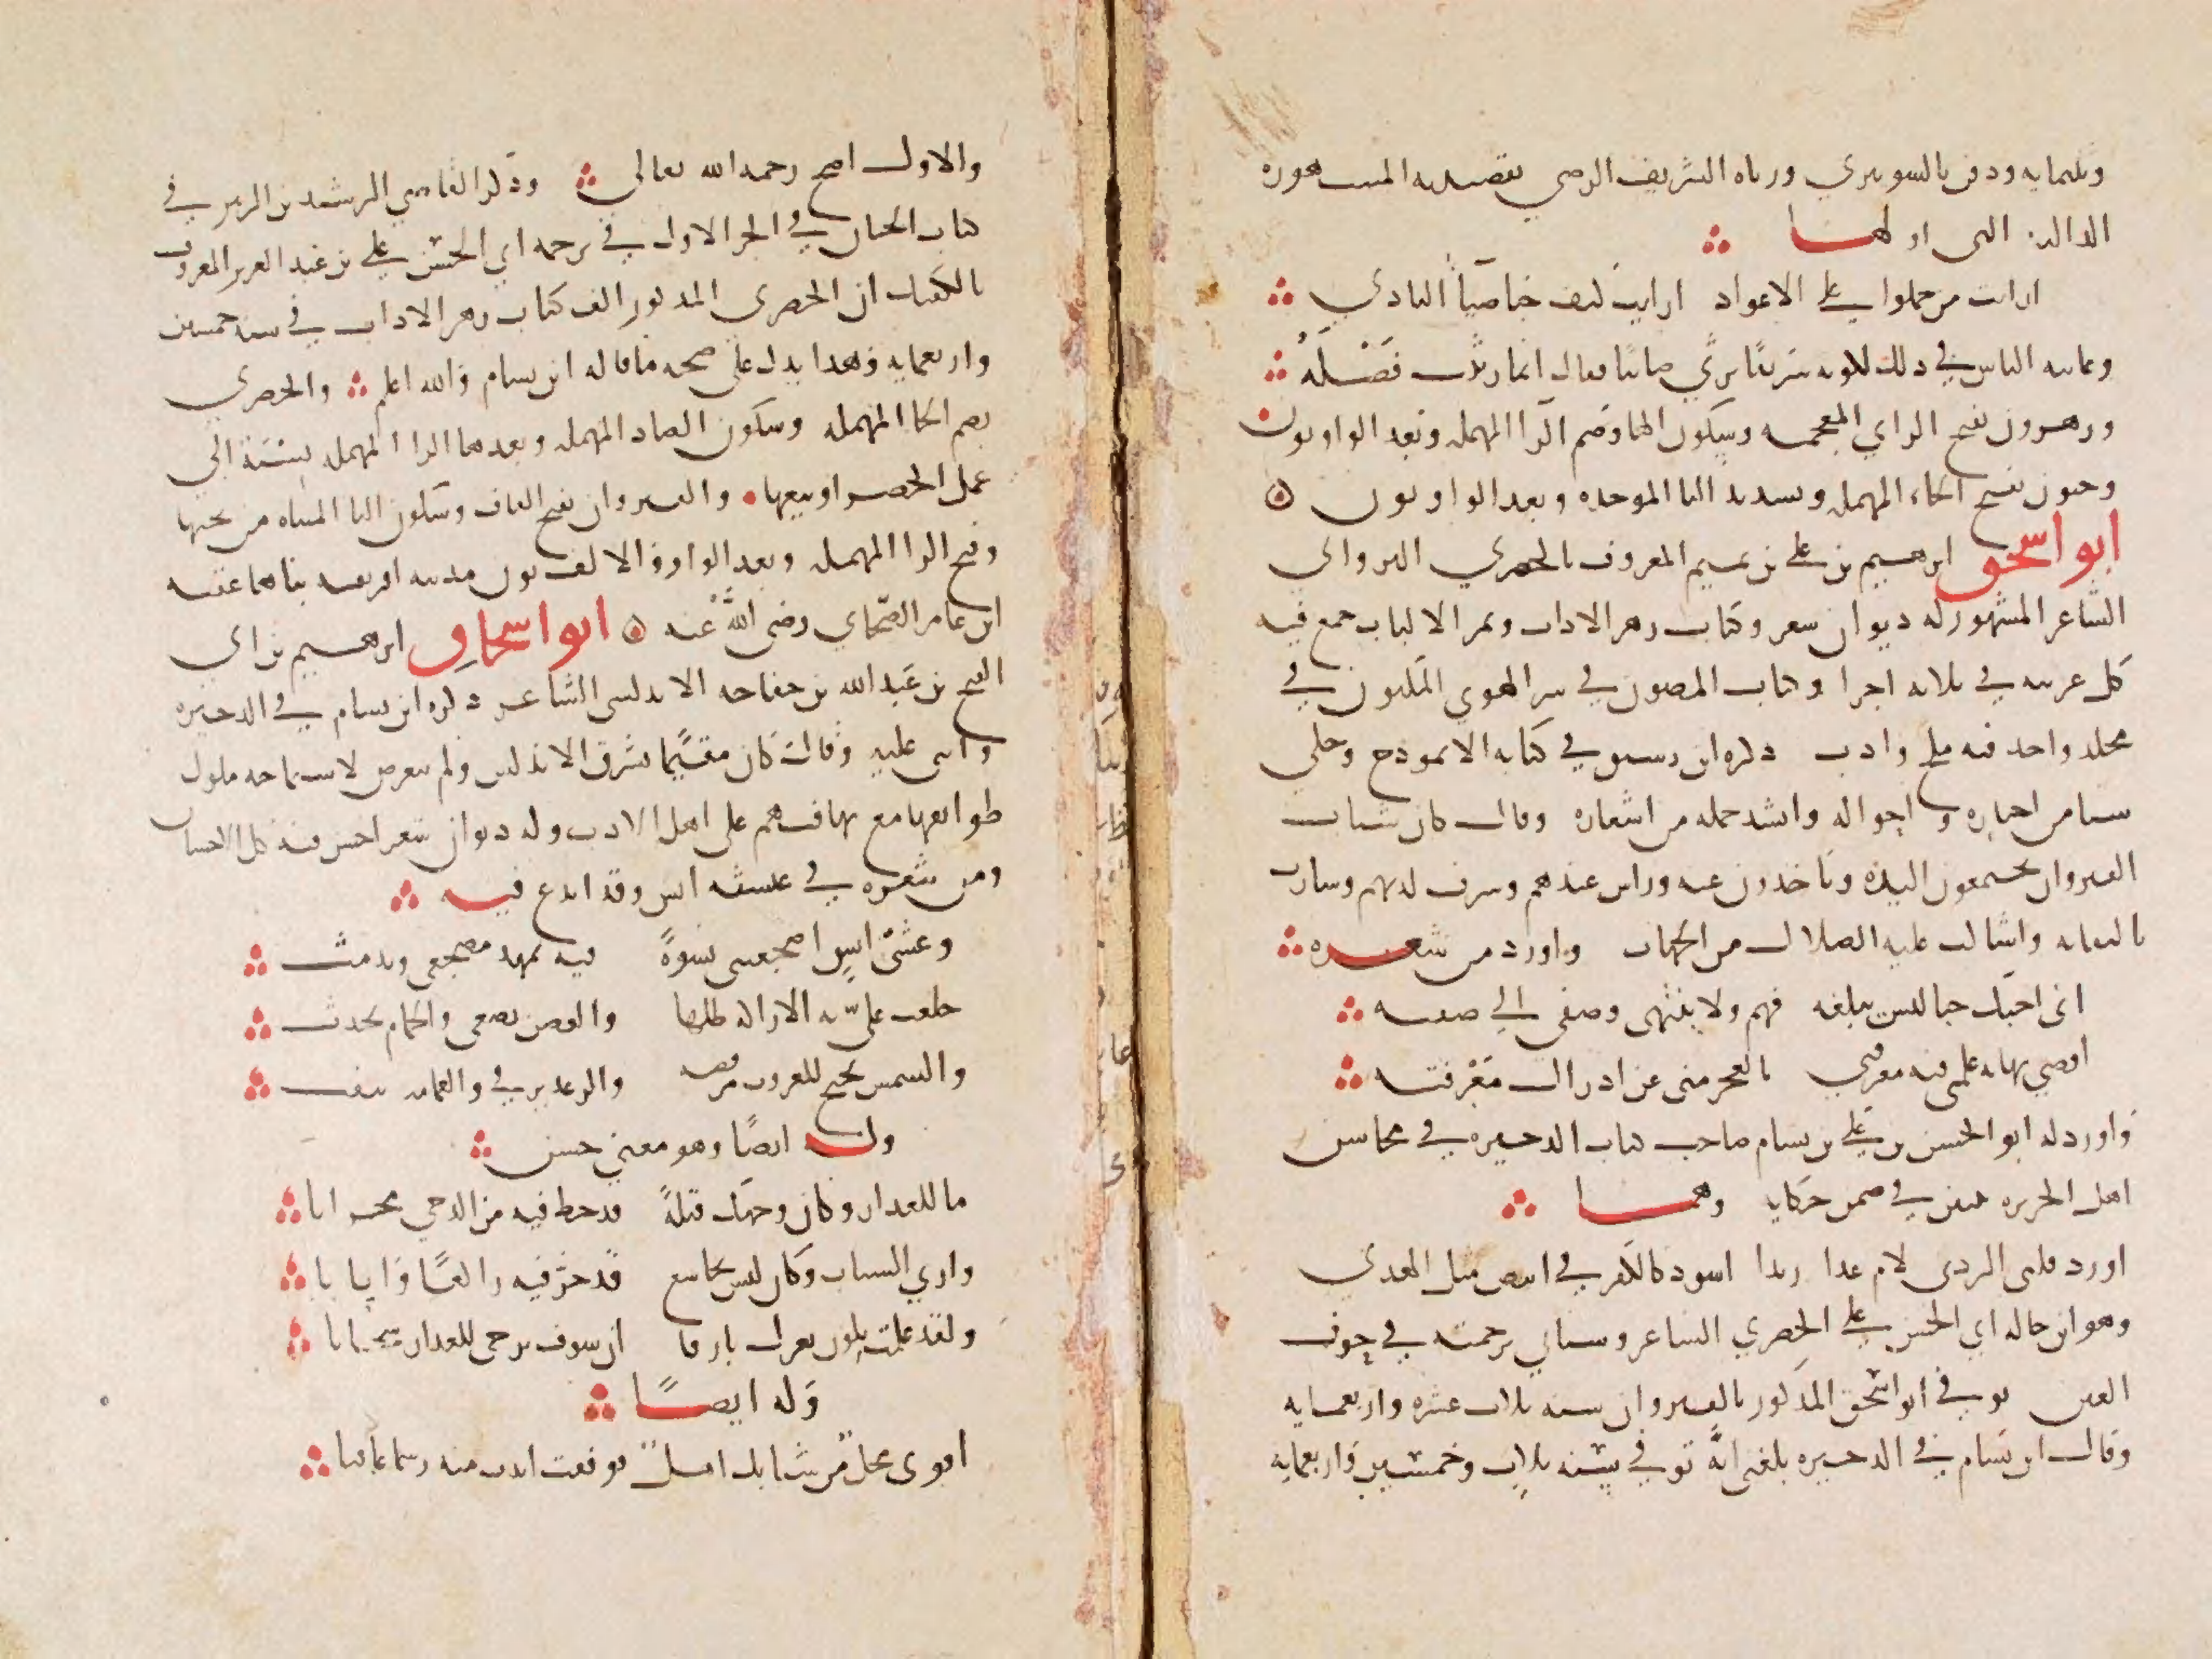 وثلثمايه ودفن بالشونيزي ورثاه الشريف الرضي بقصيدته المشهوره
الداليه التي اولها
ارايت من حملوا على الاعواد ارايت كيف خبا ضيآ النادي
وعاتبه الناس في ذلك لكونه شريفًا يرثي صابيًا فقال انما رثيت فَضْلَهُ
وزهرون بفتح الزاي المعجمه وسكون الها وضم الرا المهمله وبعد الواو نون
وحبون بفتح الحاء المهمله وتشديد البا الموحده وبعد الواو نون
ابو اسحق ابرهيم بن علي بن تميم المعروف بالحصري القيرواني
الشاعر المشهور له ديوان شعر وكتاب زهر الاداب وثمر الالباب جمع فيه
كل غريبه في ثلاثه اجزا وكتاب المصون في سر الهوى المكنون في
مجلد واحد فيه ملح وادب ذكره ابن رشيق في كتابه الانموذج وحكى
شيا من اخباره واحواله وانشد جمله من اشعاره وقال كان شباب
القيروان يجتمعون اليه وياخذون عنه وراس عندهم وشرف لديهم وسارت
تاليفاته وانثالت عليه الصلات من الجهات واورد من شعره
اني احبك حبا ليس يبلغه فهم ولا ينتهي وصفي الى صفته
اقصى نهايه علمي فيه معرفتي بالعجز مني عن ادراك مَعْرفته
واورد له ابو الحسن بن علي بن بسام صاحب كتاب الذخيره في محاسن
اهل الجزيره بيتين في ضمن حكايه وهما
اورد قلبي الردى لام عذار بدا اسود كالكفر في ابيض مثل الهدى
وهو ابن خاله ابي الحسن علي الحصري الشاعر وستاتي ترجمته في حرف
العين توفي ابو اسحق المذكور بالقيروان سنه ثلاث عشره واربعمايه
وقال ابن بسام في الذخيره بلغني انه توفي سنه ثلاث وخمسين واربعمايه
والاول اصح رحمه الله تعالى وذكر القاضي الرشيد بن الزبير في
كتاب الجنان في الجز الاول في ترجمه ابي الحسن علي بن عبد العزيز المعروف
بالفكيك ان الحصري المذكور الف كتاب زهر الاداب في سنه خمسين
واربعمايه وهذا يدل على صحه ما قاله ابن بسام والله اعلم والحصري
بضم الحا المهمله وسكون الصاد المهمله وبعدها الرا المهمله نسبة الى
عمل الحصر او بيعها والقيروان بفتح القاف وسكون اليا المثناه من تحتها
وفتح الرا المهمله وبعد الواو والالف نون مدينه افريقيه بناها عقبه
ابن عامر الصحابي رضي الله عنه ابو اسحاق ابرهيم بن ابي
الفتح بن عبد الله بن خفاجه الاندلسي الشاعر ذكره ابن بسام في الذخيره
واثنى عليه وقال كان مقيمًا بشرق الاندلس ولم يتعرض لاستماحه ملوك
طوايفها مع تهافتهم على اهل الادب وله ديوان شعر احسن فيه كل الاحسان
ومن شعره في عشيه انس وقد ابدع فيه
وعشيّ انسٍ اضجعتني نشوةً فيه تمهد مضجعي وتدمث
خلعت عليّ به الاراك ظلها والغصن يصغي والحمام يحدث
والشمس تجنح للغروب مريضه والرعد يرقي والغمامه تنفث
وله ايضًا وهو معنى حسن
ما للعذار وكان وجهك قبلةً قد خط فيه من الدجى محرابا
واري الشباب وكان ليس بخاشع قد خر فيه راكعًا وانابا
ولقد علمت بكون ثغرك بارقا ان سوف يزجي للعذار سحابا
وله ايضًا
اقوى محل من شبابك اهل فوقفت اندب منه رسما عافيا